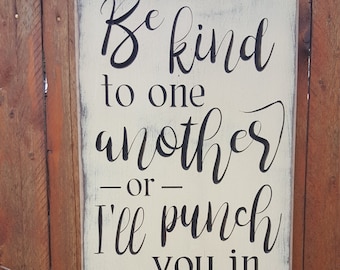 Be kind
to one
another
— or —
I'll punch
you in